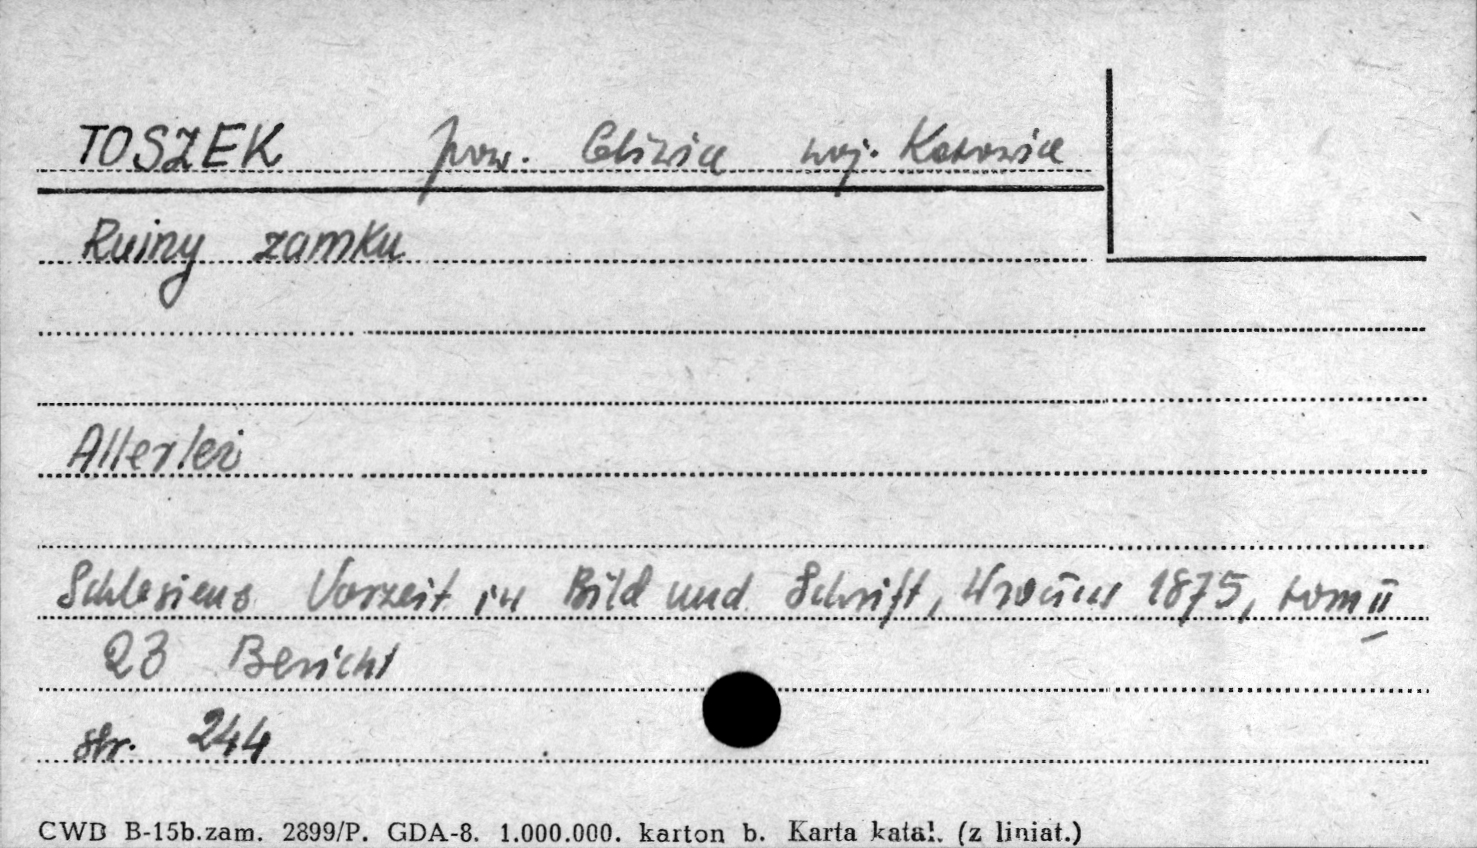 TOSZEK pow. Gliwice woj. Katowice
Ruiny zamku
Allerlei
Schlesiens Vorzeit in Bild und Schrift, 1875, tom II
23 Bericht
str. 244
CWD B-15b.zam. 2899/P. GDA-8. 1.000.000. karton b. Karta katal. (z liniat.)